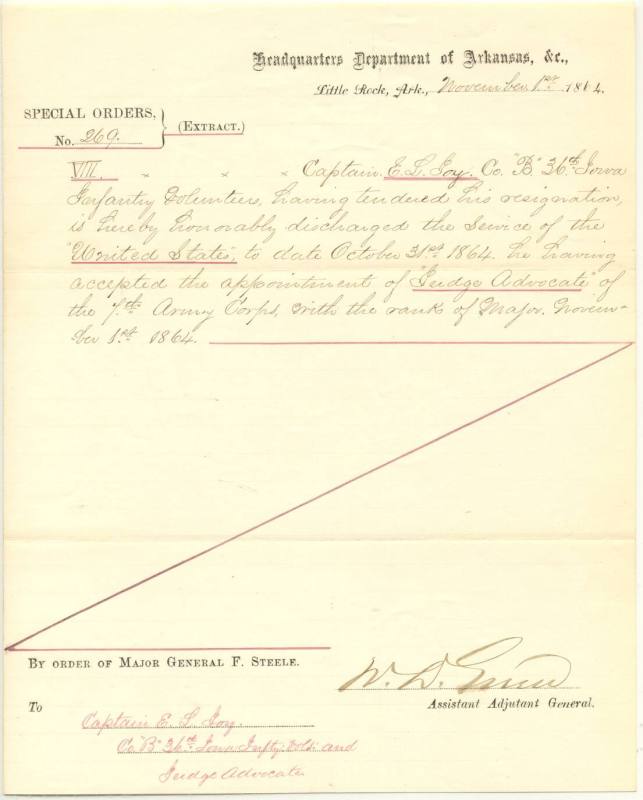 Headquarters Department of Arkansas, &c.,
Little Rock, Ark., November 1st. 1864.
SPECIAL ORDERS,
No. 269.
(EXTRACT.)
VIII. × × × Captain. E. L. Joy. Co. "B" 36th. Iowa
Infantry Volunteers, having tendered his resignation,
is hereby honorably discharged the Service of the
"United States", to date October 31st. 1864. he having
accepted the appointment of "Judge Advocate" of
the 7th. Army Corps, with the rank of Major. Novem-
ber 1st. 1864.
BY ORDER OF MAJOR GENERAL F. STEELE.
W. D. Green
Assistant Adjutant General.
To
Captain E. L. Joy.
Co "B" 36th. Iowa Infty. Vols. and
Judge Advocate